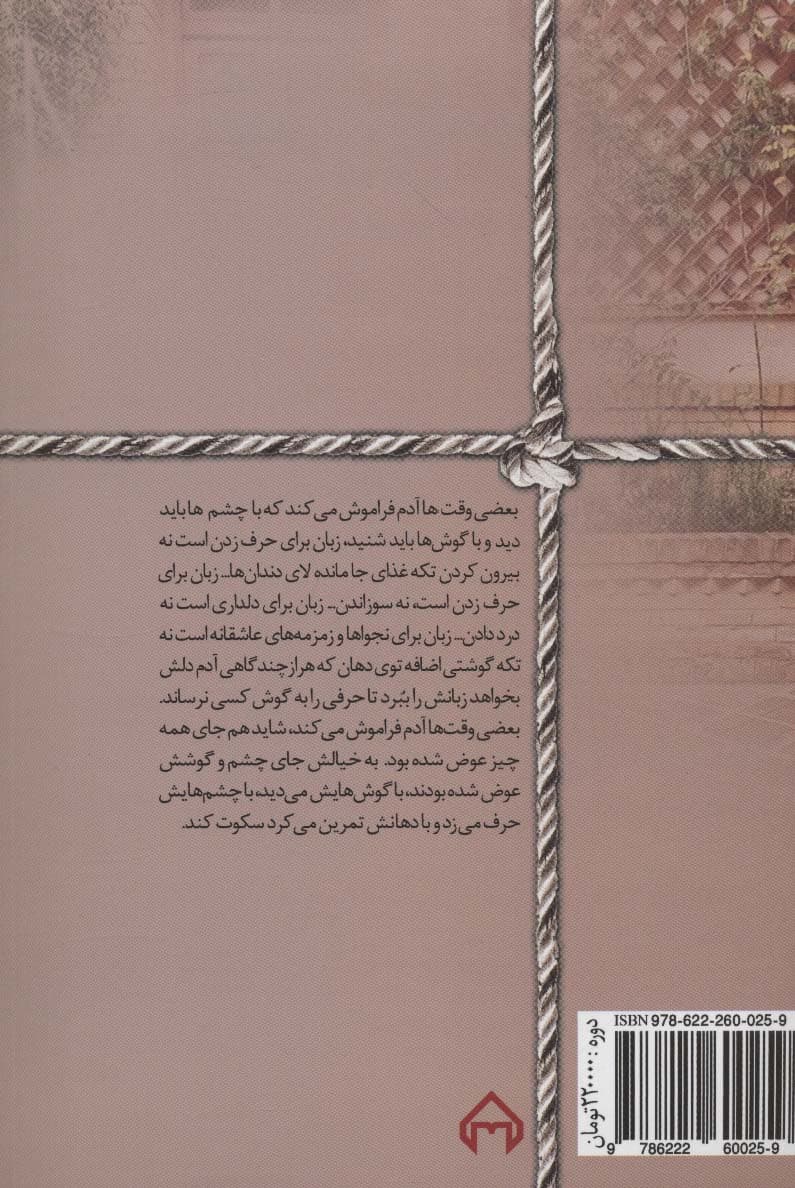 بعضی وقت‌ها آدم فراموش می‌کند که با چشم ها باید
دید و با گوش‌ها باید شنید، زبان برای حرف زدن است نه
بیرون کردن تکه غذای جا مانده لای دندان‌ها... زبان برای
حرف زدن است، نه سوزاندن... زبان برای دلداری است نه
درد دادن... زبان برای نجواها و زمزمه‌های عاشقانه است نه
تکه گوشتی اضافه توی دهان که هرازچندگاهی آدم دلش
بخواهد زبانش را ببُرد تا حرفی را به گوش کسی نرساند.
بعضی وقت‌ها آدم فراموش می‌کند، شاید هم جای همه
چیز عوض شده بود. به خیالش جای چشم و گوشش
عوض شده بودند، با گوش‌هایش می‌دید، با چشم‌هایش
حرف می‌زد و با دهانش تمرین می‌کرد سکوت کند.
ISBN 978-622-260-025-9
دوره : ۲۲۰۰۰۰ تومان
9 786222 60025-9